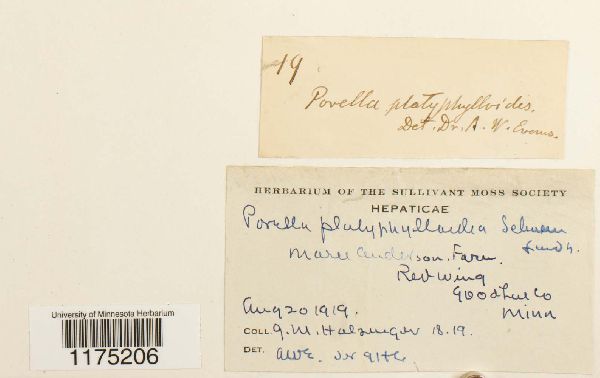 19
Porella platyphylloidis.
Det. Dr. A. W. Evans.
HERBARIUM OF THE SULLIVANT MOSS SOCIETY
HEPATICAE
Porella platyphylloidea Schwein
Lindb.
Anderson Farm.
Red Wing
Goodhue Co
Minn
Aug 20 1919.
COLL. J. M. Holzinger 18.19.
DET. AWE.
University of Minnesota Herbarium
1175206